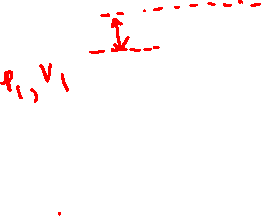 P₁, V₁